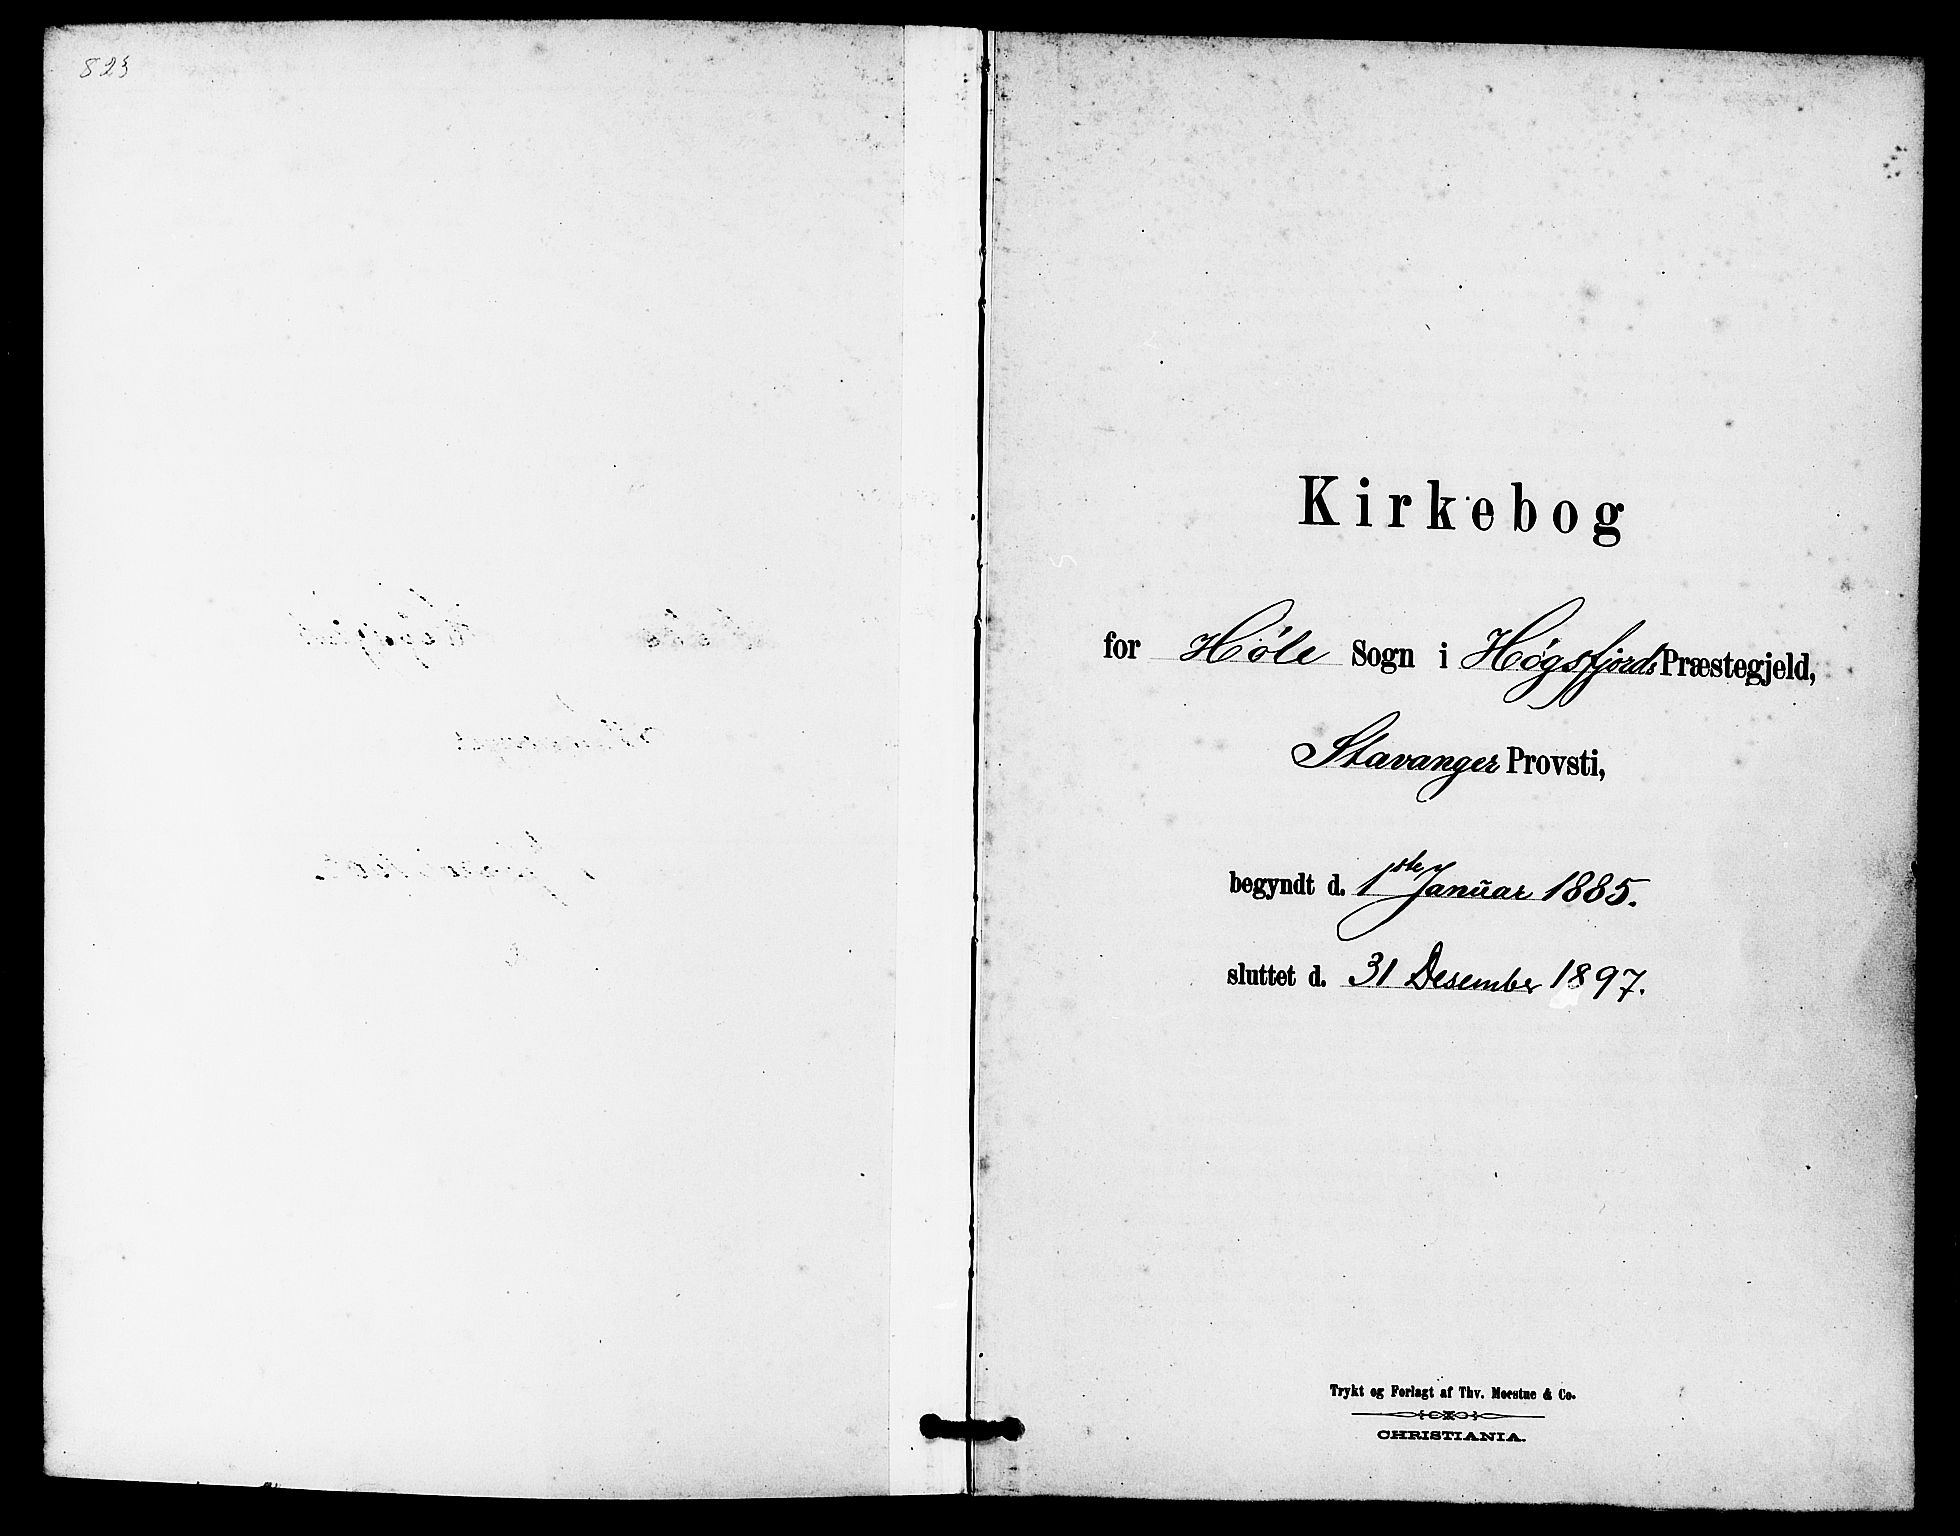 823
Kirkebog
for Høle Sogn i Høgsfjords Præstegjeld,
Stavanger Provsti,
begyndt d. 1ste Januar 1885.
sluttet d. 31 Desember 1897.
Trykt og Forlagt af Thv. Moestue & Co.
CHRISTIANIA.